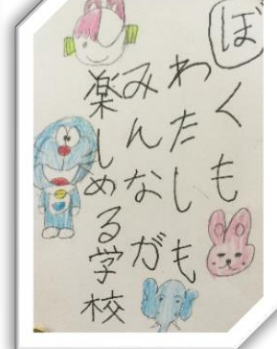 ぼくも
わたしも
みんなが
楽しめる学校